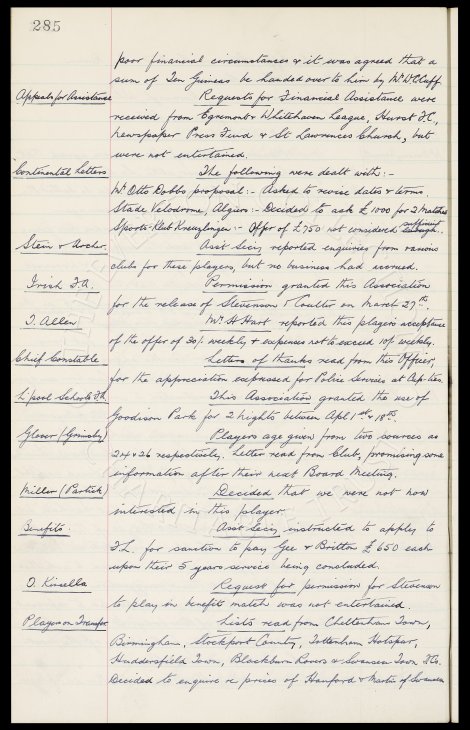 285
poor financial circumstances & it was agreed that a
sum of Ten Guineas be handed over to him by Mr W.C. Cuff.
Appeals for Assistance Requests for Financial Assistance were
received from Egremont & Whitehaven League, Hurst F.C,
Newspaper Press Fund & St Lawrences Church, but
were not entertained.
Continental Letters The following were dealt with:-
Mr Otto Dobbs proposal:- Asked to revise dates & terms
Stade Velodrome, Algiers:- Decided to ask £1000 for 2 Matches
Sports-Klub Kreuzlingen:- Offer of £750 not considered sufficient
Stein & Archer. Asst Secy reported enquiries from various
clubs for these players, but no business had accrued.
Irish F.A. Permission granted this Association
for the release of Stevenson & Coulter on March 27th.
T. Allen Mr H Hart reported this players acceptance
of the offer of 30/- weekly & expenses not to exceed 10/- weekly.
Chief Constable Letters of thanks read from this Officer,
for the appreciation expressed for Police Services at Cup-ties.
L'pool Schools F.A. This Association granted the use of
Goodison Park for 2 nights between Apl 1st & 18th.
Glover (Grimsby) Players age given from two sources as
24 & 26 respectively. Letter read from Club, promising some
information after their next Board Meeting.
Miller (Partick) Decided that we were not now
interested in this player.
Benefits Asst Secy instructed to apply to
F.L. for sanction to pay Gee & Britton £650 each
upon their 5 years service being concluded.
T. Kinsella Request for permission for Stevenson
to play in benefit match was not entertained.
Players on Transfer Lists read from Cheltenham Town,
Birmingham, Stockport County, Tottenham Hotspur,
Huddersfield Town, Blackburn Rovers & Swansea Town F.Cs.
Decided to enquire re prices of Hanford & Martin of Swansea